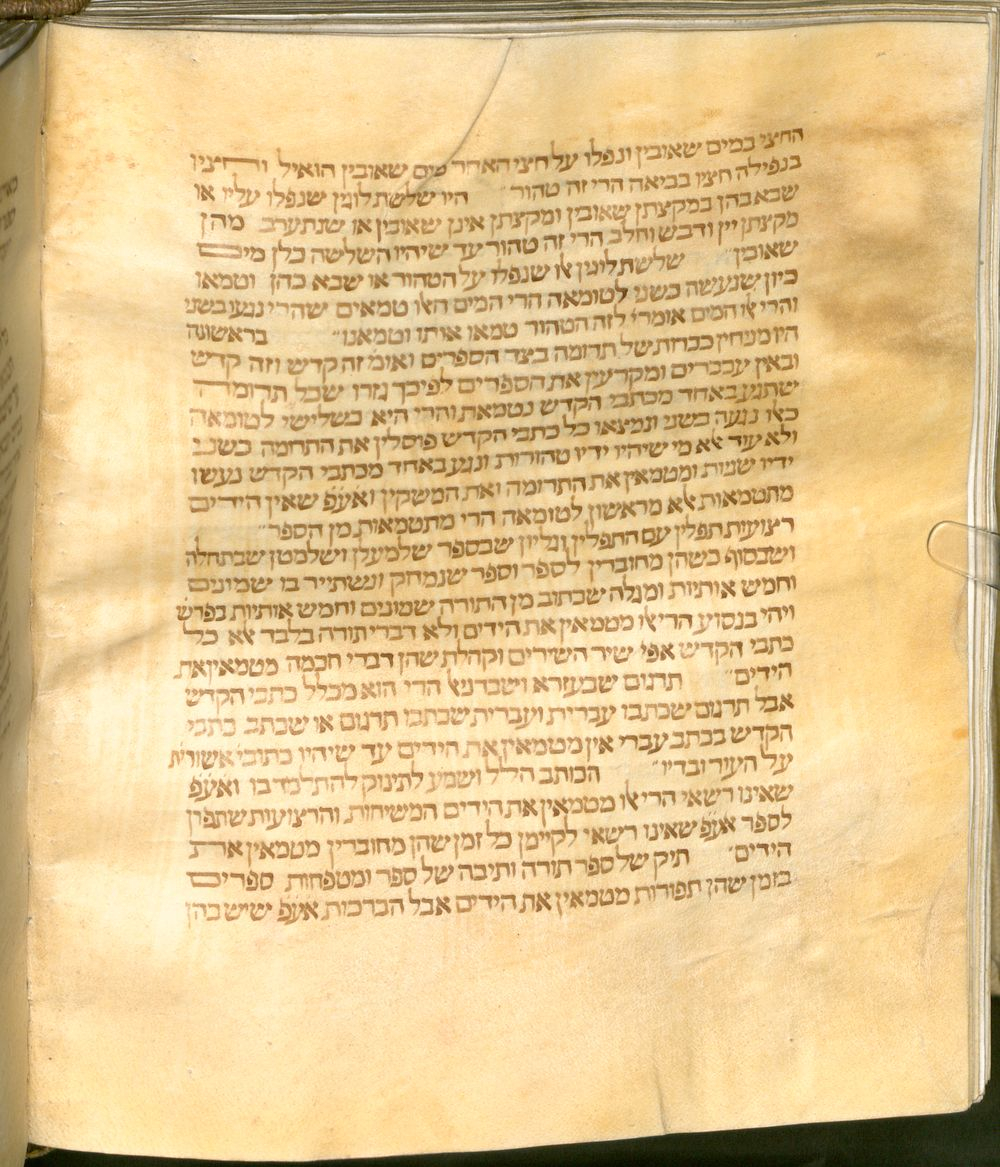 החצי במים שאובין ונפלו על חצי האחר מים שאובין הואיל וחציו
בנפילה חציו בביאה הרי זה טהור״ היו שלשת לוגין שנפלו עליו או
שבא בהן במקצתן שאובין ומקצתן אינן שאובין או שנתערב מהן
מקצתן יין ודבש וחלב הרי זה טהור עד שיהיו השלשה כלן מים
שאובין״ שלשת לוגין אלו שנפלו על הטהור או שבא בהן וטמאו
כיון שנעשה כשני לטומאה הרי המים האלו טמאים שהרי נגעו בשני
והרי אלו המים אומרי׳ לזה הטהור טמאו אותו וטמאנו״ בראשונה
היו מניחין ככרות של תרומה בצד הספרים ואומ׳ זה קדש וזה קדש
ובאין עכברים ומקרעין את הספרים לפיכך גזרו שכל תרומה
שתגע באחד מכתבי הקדש נטמאת והרי היא כשלישי לטומאה
כאלו נגעה בשני ונמצאו כל כתבי הקדש פוסלין את התרומה כשני
ולא עוד אלא מי שיהיו ידיו טהורות ונגע באחד מכתבי הקדש נעשו
ידיו שניות ומטמאין את התרומה ואת המשקין ואע״פ שאין הידים
מתטמאות אלא מראשון לטומאה הרי מתטמאות מן הספר״
רצועות תפלין עם התפלין וגליון שבספר שלמעלן ושלמטן שבתחלה
ושבסוף כשהן מחוברין לספר וספר שנמחק ונשתייר בו שמונים
וחמש אותיות ומגלה שכתוב מן התורה שמונים וחמש אותיות כפרש
ויהי בנסוע הרי אלו מטמאין את הידים ולא דברי תורה בלבד אלא כל
כתבי הקדש אפי׳ שיר השירים וקהלת שהן דברי חכמה מטמאין את
הידים״ תרגום שבעזרא ושבדניאל הרי הוא מכלל כתבי הקדש
אבל תרגום שכתבו עברית ועברית שכתבו תרגום או שכתב כתבי
הקדש בכתב עברי אין מטמאין את הידים עד שיהיו כתובי׳ אשורית
על העור ובדיו״ הכותב הלל ושמע לתינוק להתלמד בו ואע״פ
שאינו רשאי הרי אלו מטמאין את הידים המשיחות והרצועות שתפרן
לספר אע״פ שאינו רשאי לקיימן כל זמן שהן מחוברין מטמאין את
הידים״ תיק של ספר תורה ותיבה של ספר ומטפחות ספרים
בזמן שהן תפורות מטמאין את הידים אבל הברכות אע״פ שיש בהן